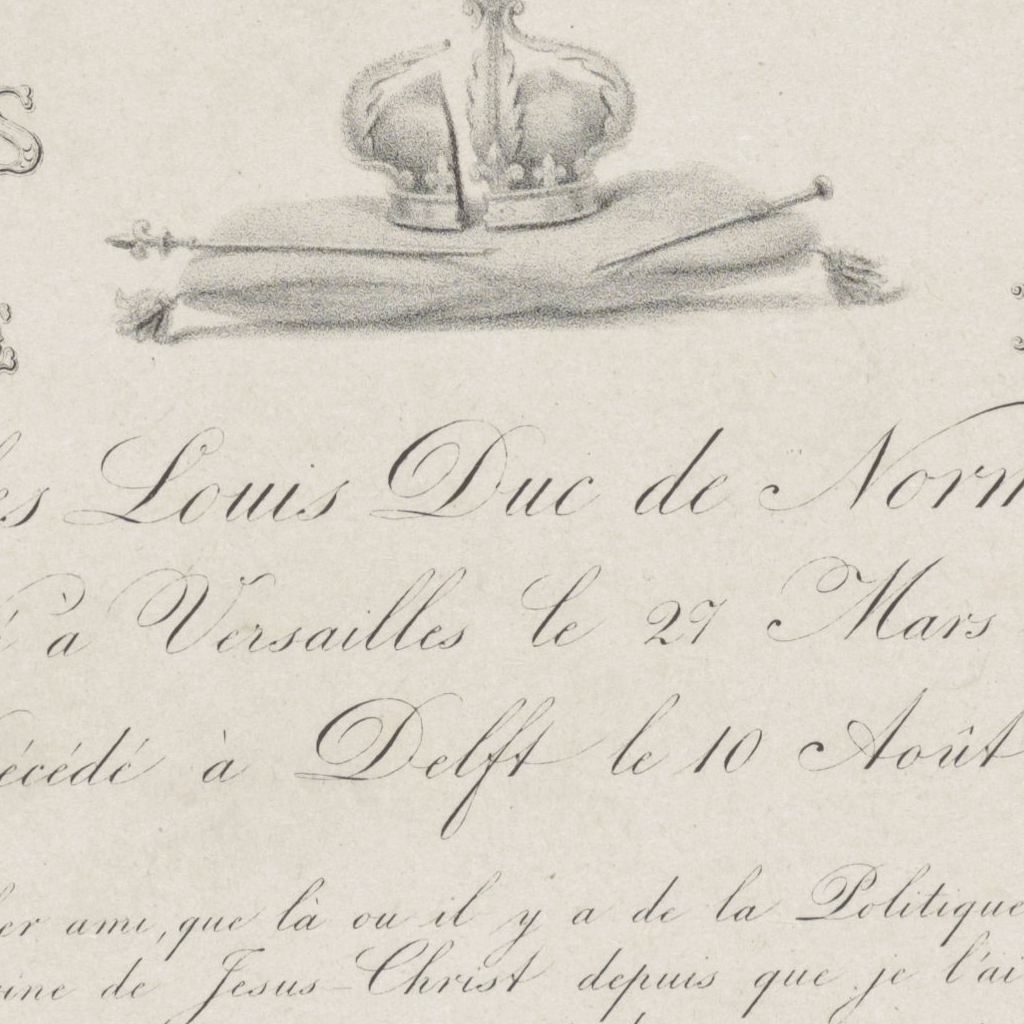 S
es Louis Duc de Norm
é à Versailles le 27 Mars
écédé à Delft le 10 Août
er ami, que là ou il y a de la Politique
ine de Jesus-Christ depuis que je l'ai